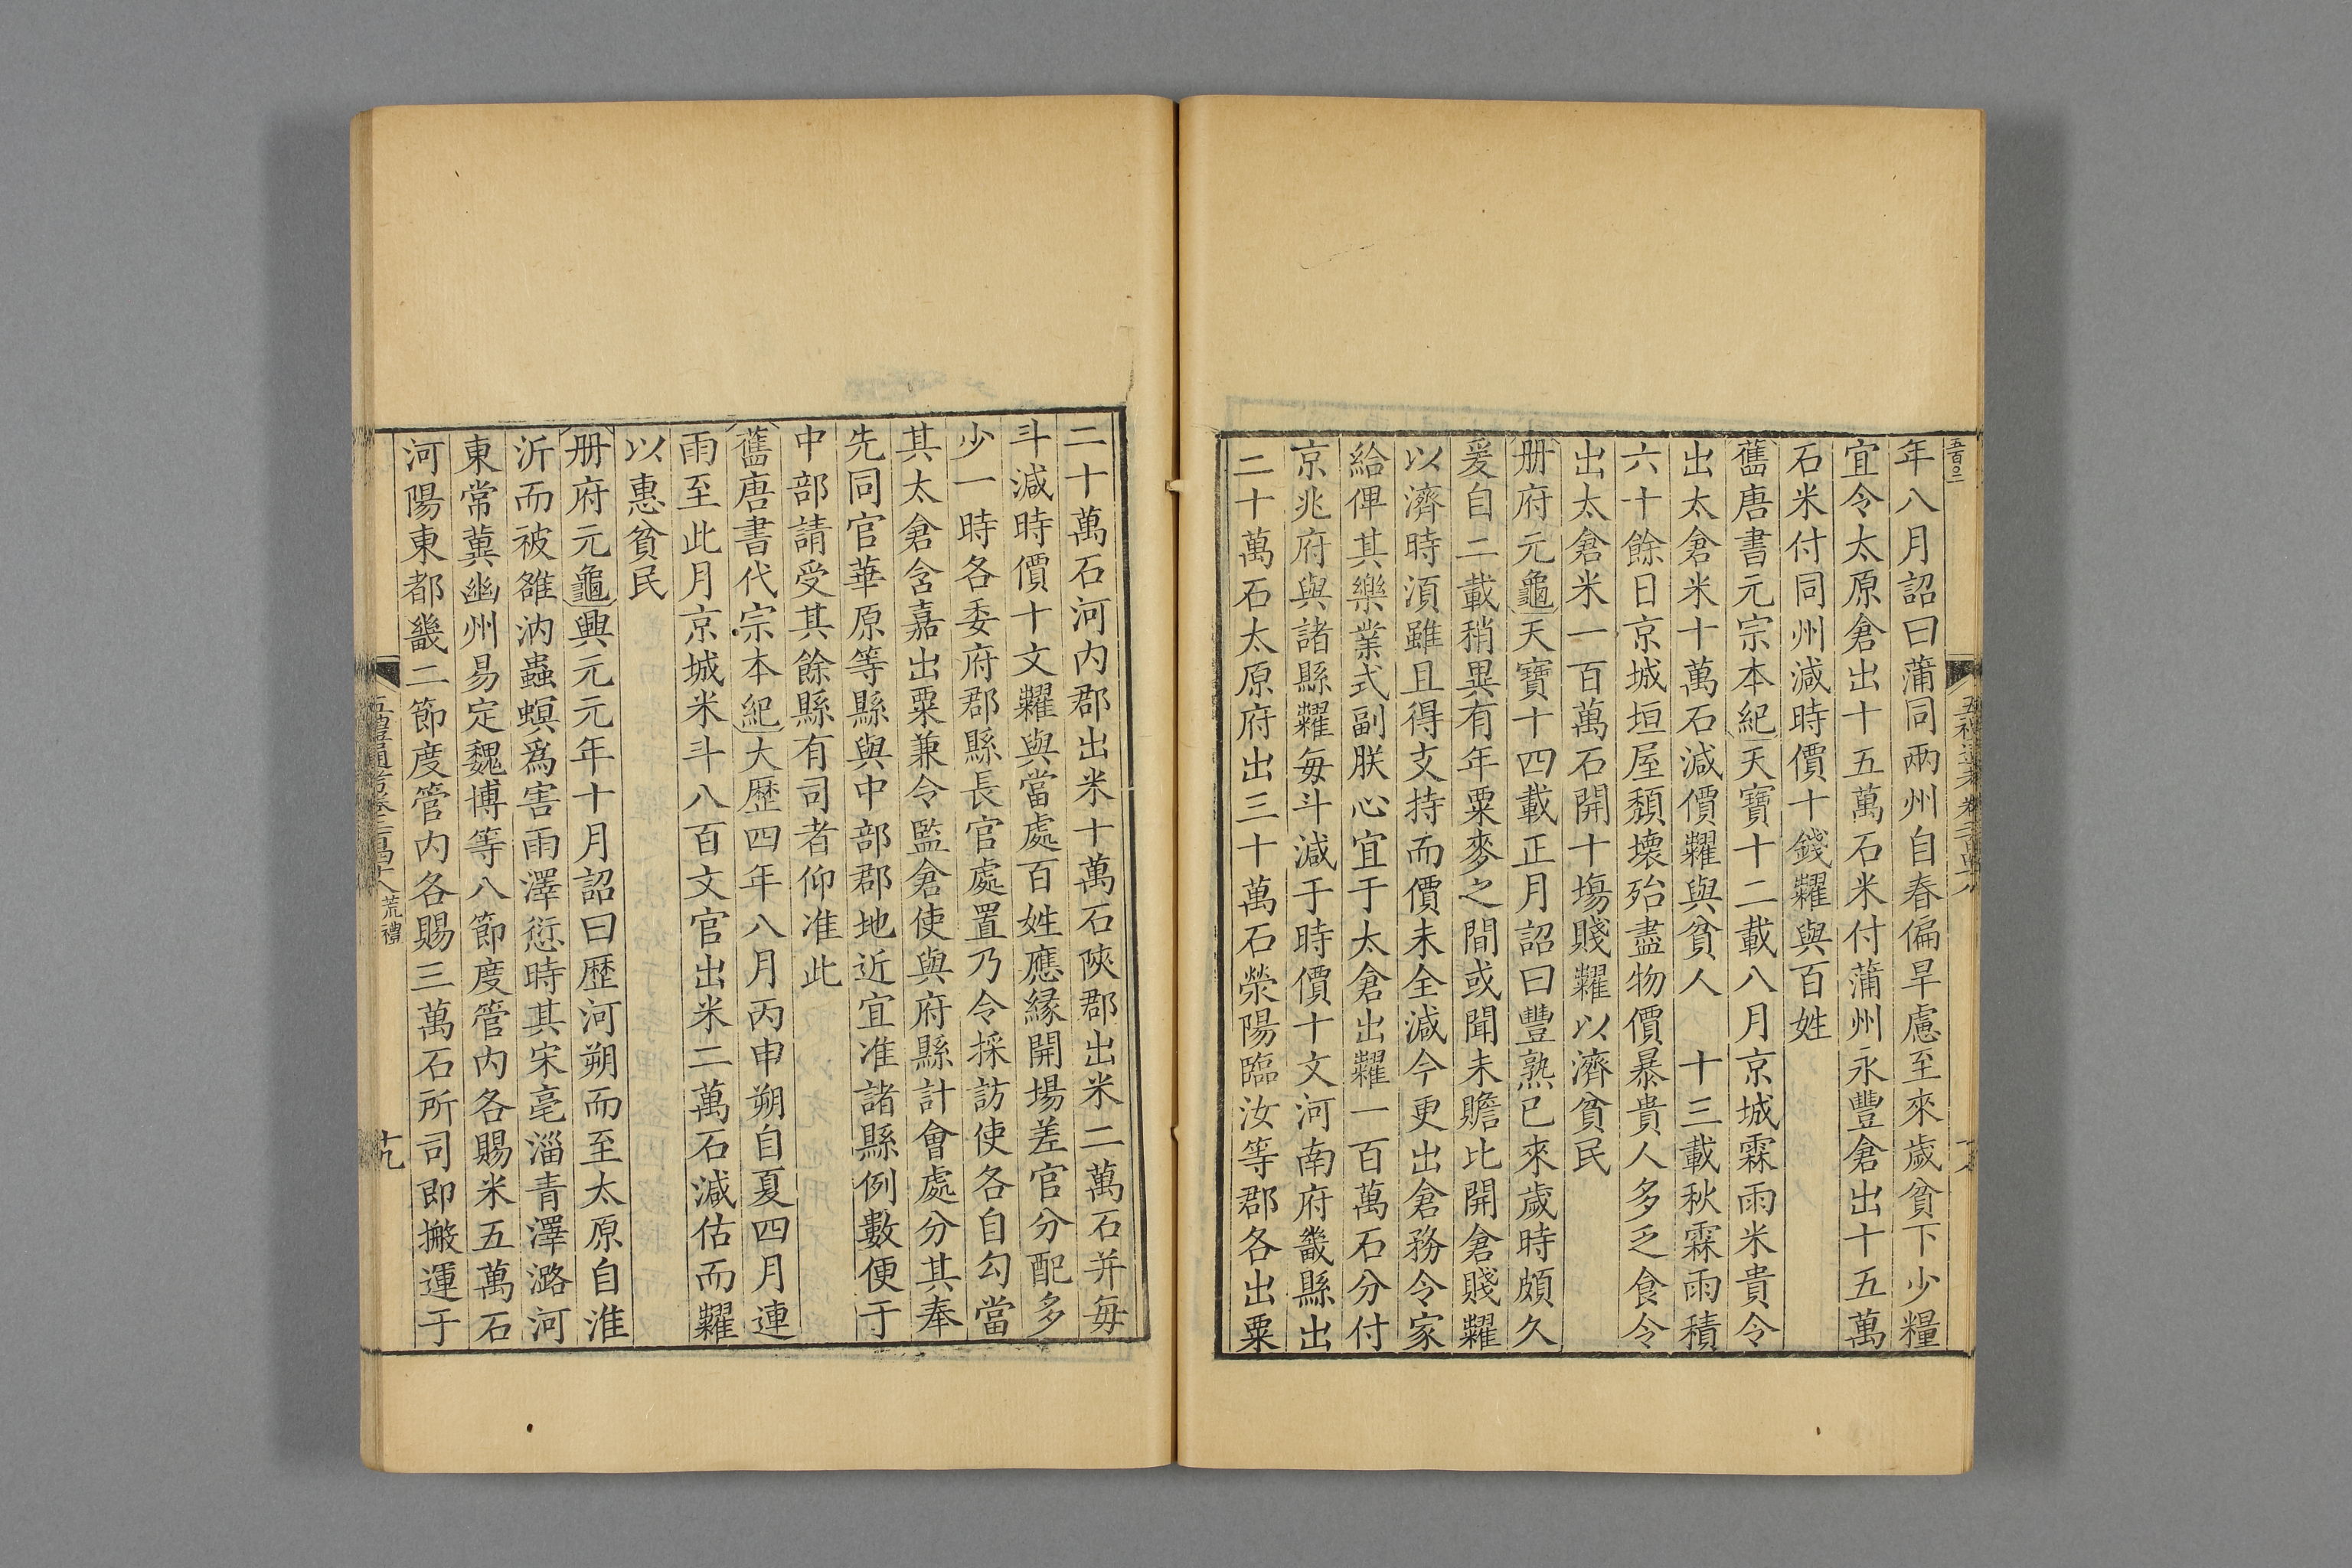 年八月詔曰蒲同兩州自春偏旱慮至來歲貧下少糧
宜令太原倉出十五萬石米付蒲州永豐倉出十五萬
石米付同州減時價十錢糶與百姓
舊唐書元宗本紀天寶十二載八月京城霖雨米貴令
出太倉米十萬石減價糶與貧人　十三載秋霖雨積
六十餘日京城垣屋頹壞殆盡物價暴貴人多乏食令
出太倉米一百萬石開十場賤糶以濟貧民
册府元龜天寶十四載正月詔曰豐熟已來歲時頗久
爰自二載稍異有年粟麥之間或聞未贍比開倉賤糶
以濟時須雖且得支持而價未全減今更出倉務令家
給俾其樂業式副朕心宜于太倉出糶一百萬石分付
京兆府與諸縣糶每斗減于時價十文河南府畿縣出
二十萬石太原府出三十萬石滎陽臨汝等郡各出粟
二十萬石河内郡出米十萬石陝郡出米二萬石并每
斗減時價十文糶與當處百姓應緣開場差官分配多
少一時各委府郡縣長官處置乃令採訪使各自勾當
其太倉含嘉出粟兼令監倉使與府縣計會處分其奉
先同官華原等縣與中部郡地近宜准諸縣例數便于
中部請受其餘縣有司者仰准此
舊唐書代宗本紀大歷四年八月丙申朔自夏四月連
雨至此月京城米斗八百文官出米二萬石減估而糶
以惠貧民
册府元龜興元元年十月詔曰歷河朔而至太原自淮
沂而被雒汭蟲螟爲害雨澤愆時其宋亳淄青澤潞河
東常冀幽州易定魏博等八節度管内各賜米五萬石
河陽東都畿二節度管内各賜三萬石所司即搬運于
五禮通考卷二百四十八 荒禮
十九